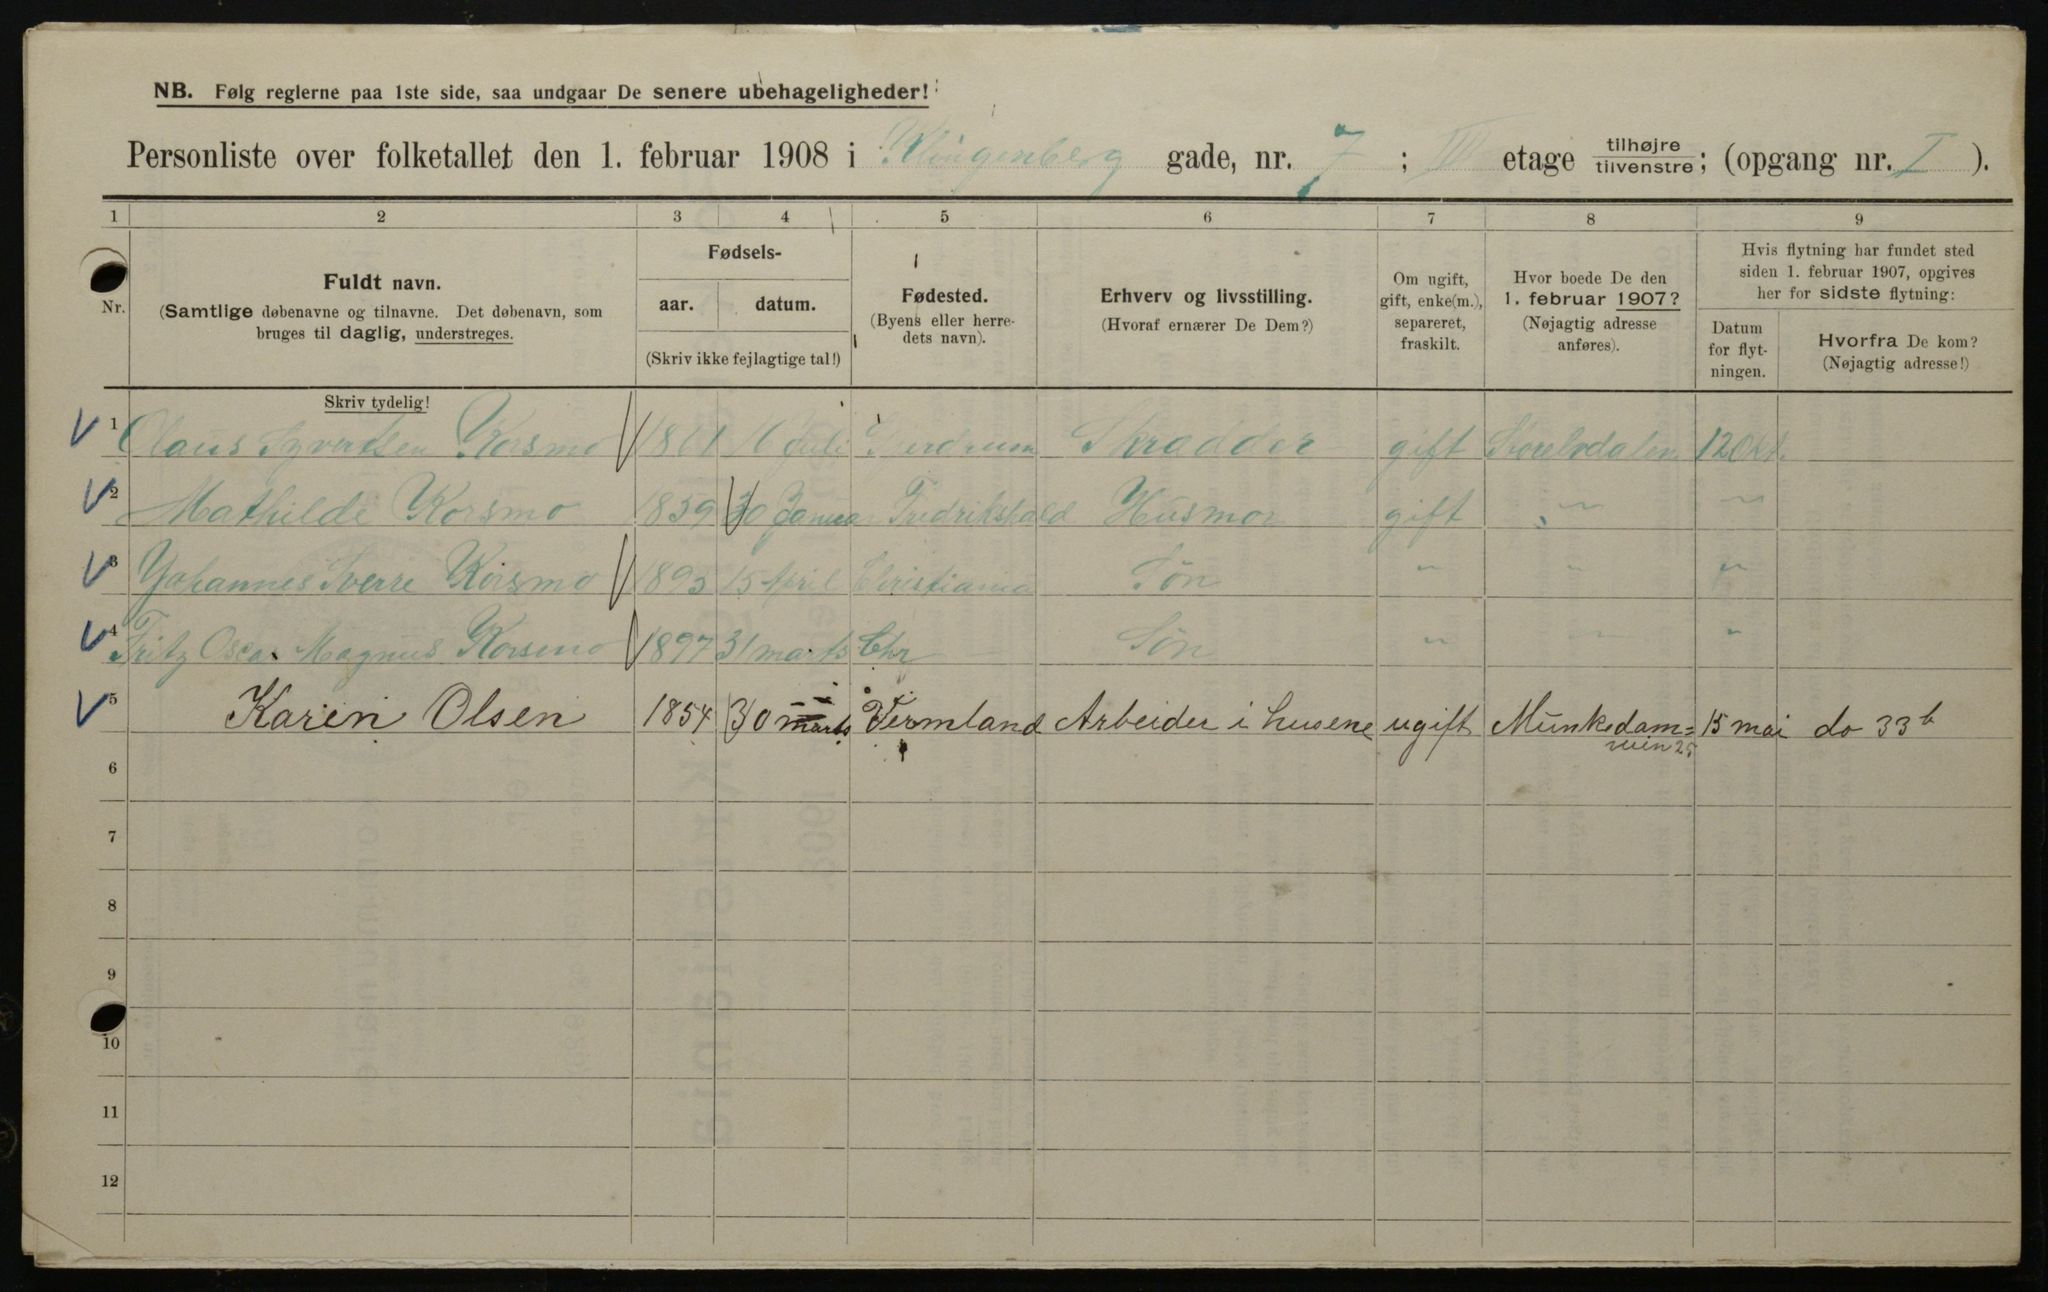 NB. Følg reglerne paa 1ste side, saa undgaar De senere ubehageligheder!
Personliste over folketallet den 1. februar 1908 i Klingenberg gade, nr. 7; etage tilhøjre tilvenstre; (opgang nr. I).
1 2 3 4 5 6 7 8 9
Nr.
Fuldt navn.
(Samtlige døbenavne og tilnavne. Det døbenavn, som
bruges til daglig, understreges.
Skriv tydelig!
Fødsels-
aar. datum.
(Skriv ikke fejlagtige tal!)
Fødested.
(Byens eller herre-
dets navn).
Erhverv og livsstilling.
(Hvoraf ernærer De Dem?)
Om ugift,
gift, enke(m.),
separeret,
fraskilt.
Hvor boede De den
1. februar 1907?
(Nøjagtig adresse
anføres).
Hvis flytning har fundet sted
siden 1. februar 1907, opgives
her for sidste flytning:
Datum
for flyt-
ningen.
Hvorfra De kom?
(Nøjagtig adresse!)
1 Olaus Syvertsen Korsmo 1861 16 Juli Gjerdrum Skrædder gift Storelvdalen 12 Okt.
2 Mathilde Korsmo 1859 30 Januar Fredrikshald Husmor gift " "
3 Johannes Sverre Korsmo 1895 15 April Christiania Søn " " "
4 Fritz Oscar Magnus Korsmo 1897 31 marts Chr Søn " " "
5 Karen Olsen 1854 30 marts Vermland Arbeider i husene ugift Munkedam= 15 mai do 33b
veien 25
6
7
8
9
10
11
12